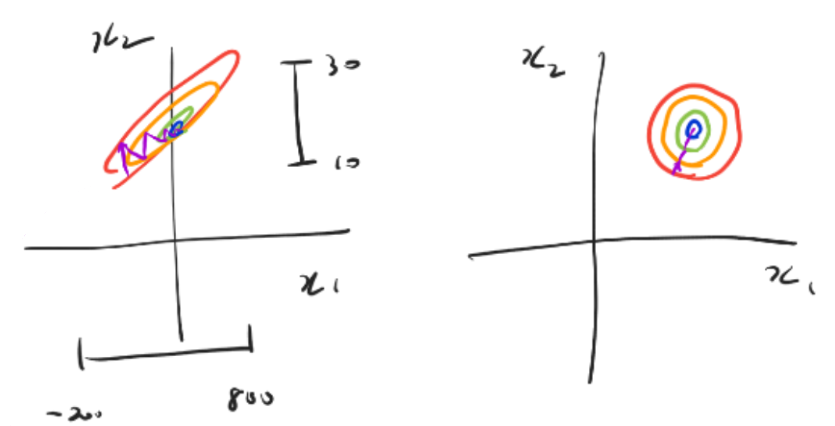 x₂
30
10
x₁
-200
800
x₂
x₁